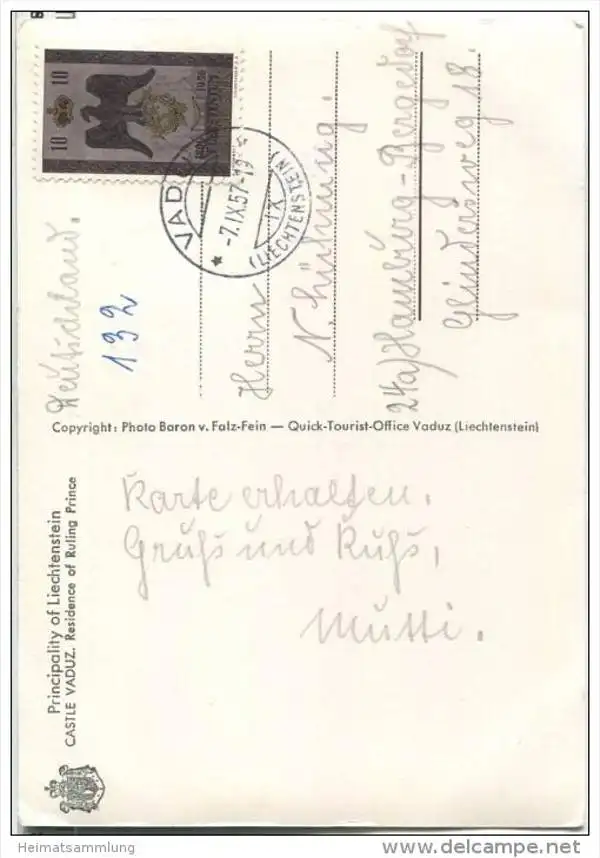 10 10
1956
VADUZ
-7.IX.57-19
IX
(LIECHTENSTEIN)
Deutschland.
132
Herrn
N. Hühnig.
24a) Hamburg-Bergedorf
Glindersweg 18.
Copyright: Photo Baron v. Falz-Fein — Quick-Tourist-Office Vaduz (Liechtenstein)
Karte erhalten.
Gruhs und Kuhs,
Mutti.
Principality of Liechtenstein
CASTLE VADUZ. Residence of Ruling Prince
Heimatsammlung
delcampe.net